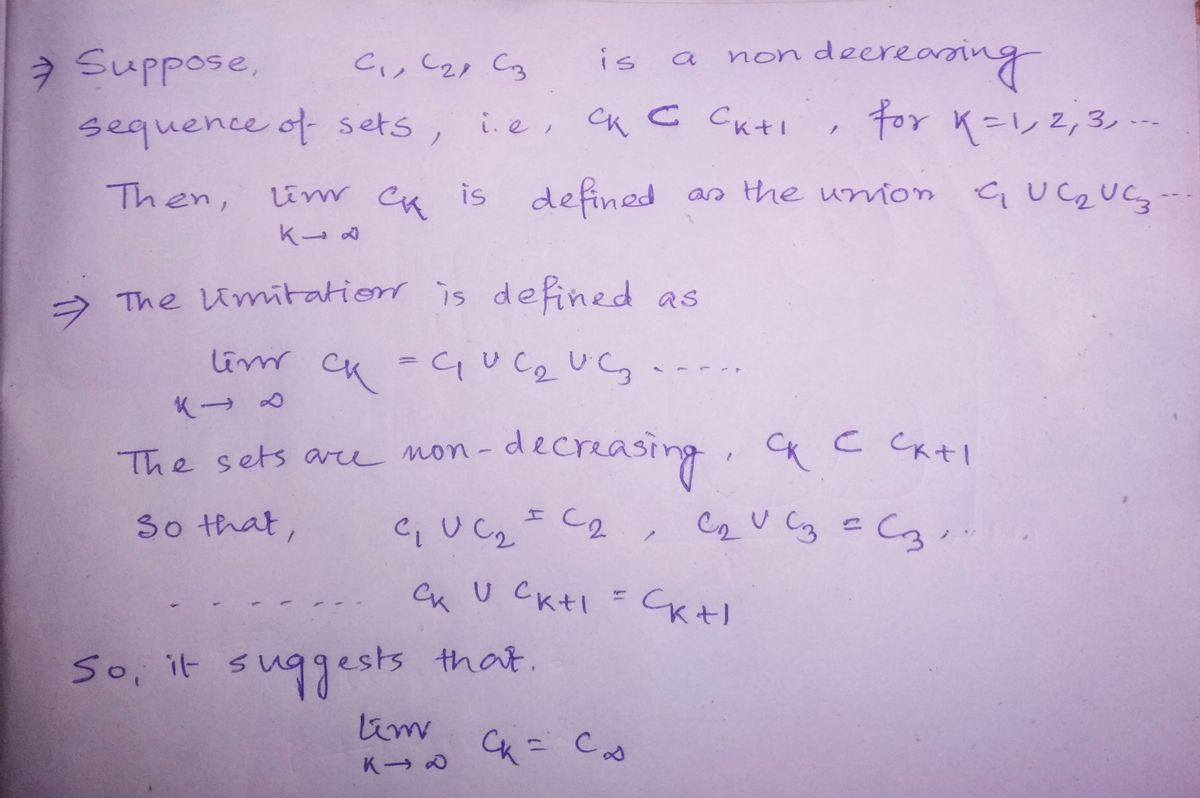 ⇒ Suppose, C₁, C₂, C₃ is a nondecreasing
sequence of sets, i.e, CK ⊂ CK+1, for K=1, 2, 3, ...
Then, lim CK is defined as the union C₁ ∪ C₂ ∪ C₃ ...
K→∞
⇒ The limitation is defined as
lim CK = C₁ ∪ C₂ ∪ C₃ .....
K→∞
The sets are non-decreasing, CK ⊂ CK+1
So that, C₁ ∪ C₂ = C₂, C₂ ∪ C₃ = C₃, ..
- - - - - - - - CK ∪ CK+1 = CK+1
So, it suggests that.
lim CK = C∞
K→∞